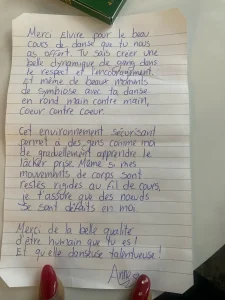 Merci Elvire pour le beau
cours de danse que tu nous
as offert. Tu sais créer une
belle dynamique de gang dans
le respect et l'encouragement,
Et même de beaux moments
de symbiose avec ta danse
en rond main contre main,
Coeur contre coeur.
Cet environnement sécurisant
permet à des gens comme moi
de graduellement apprendre le
lâcher prise. Même si mes
mouvements de corps sont
restés rigides au fil de cours,
je t'assure que des noeuds
se sont défaits en moi.
Merci de la belle qualité
d'être humain que tu es!
Et quelle danseuse talentueuse!